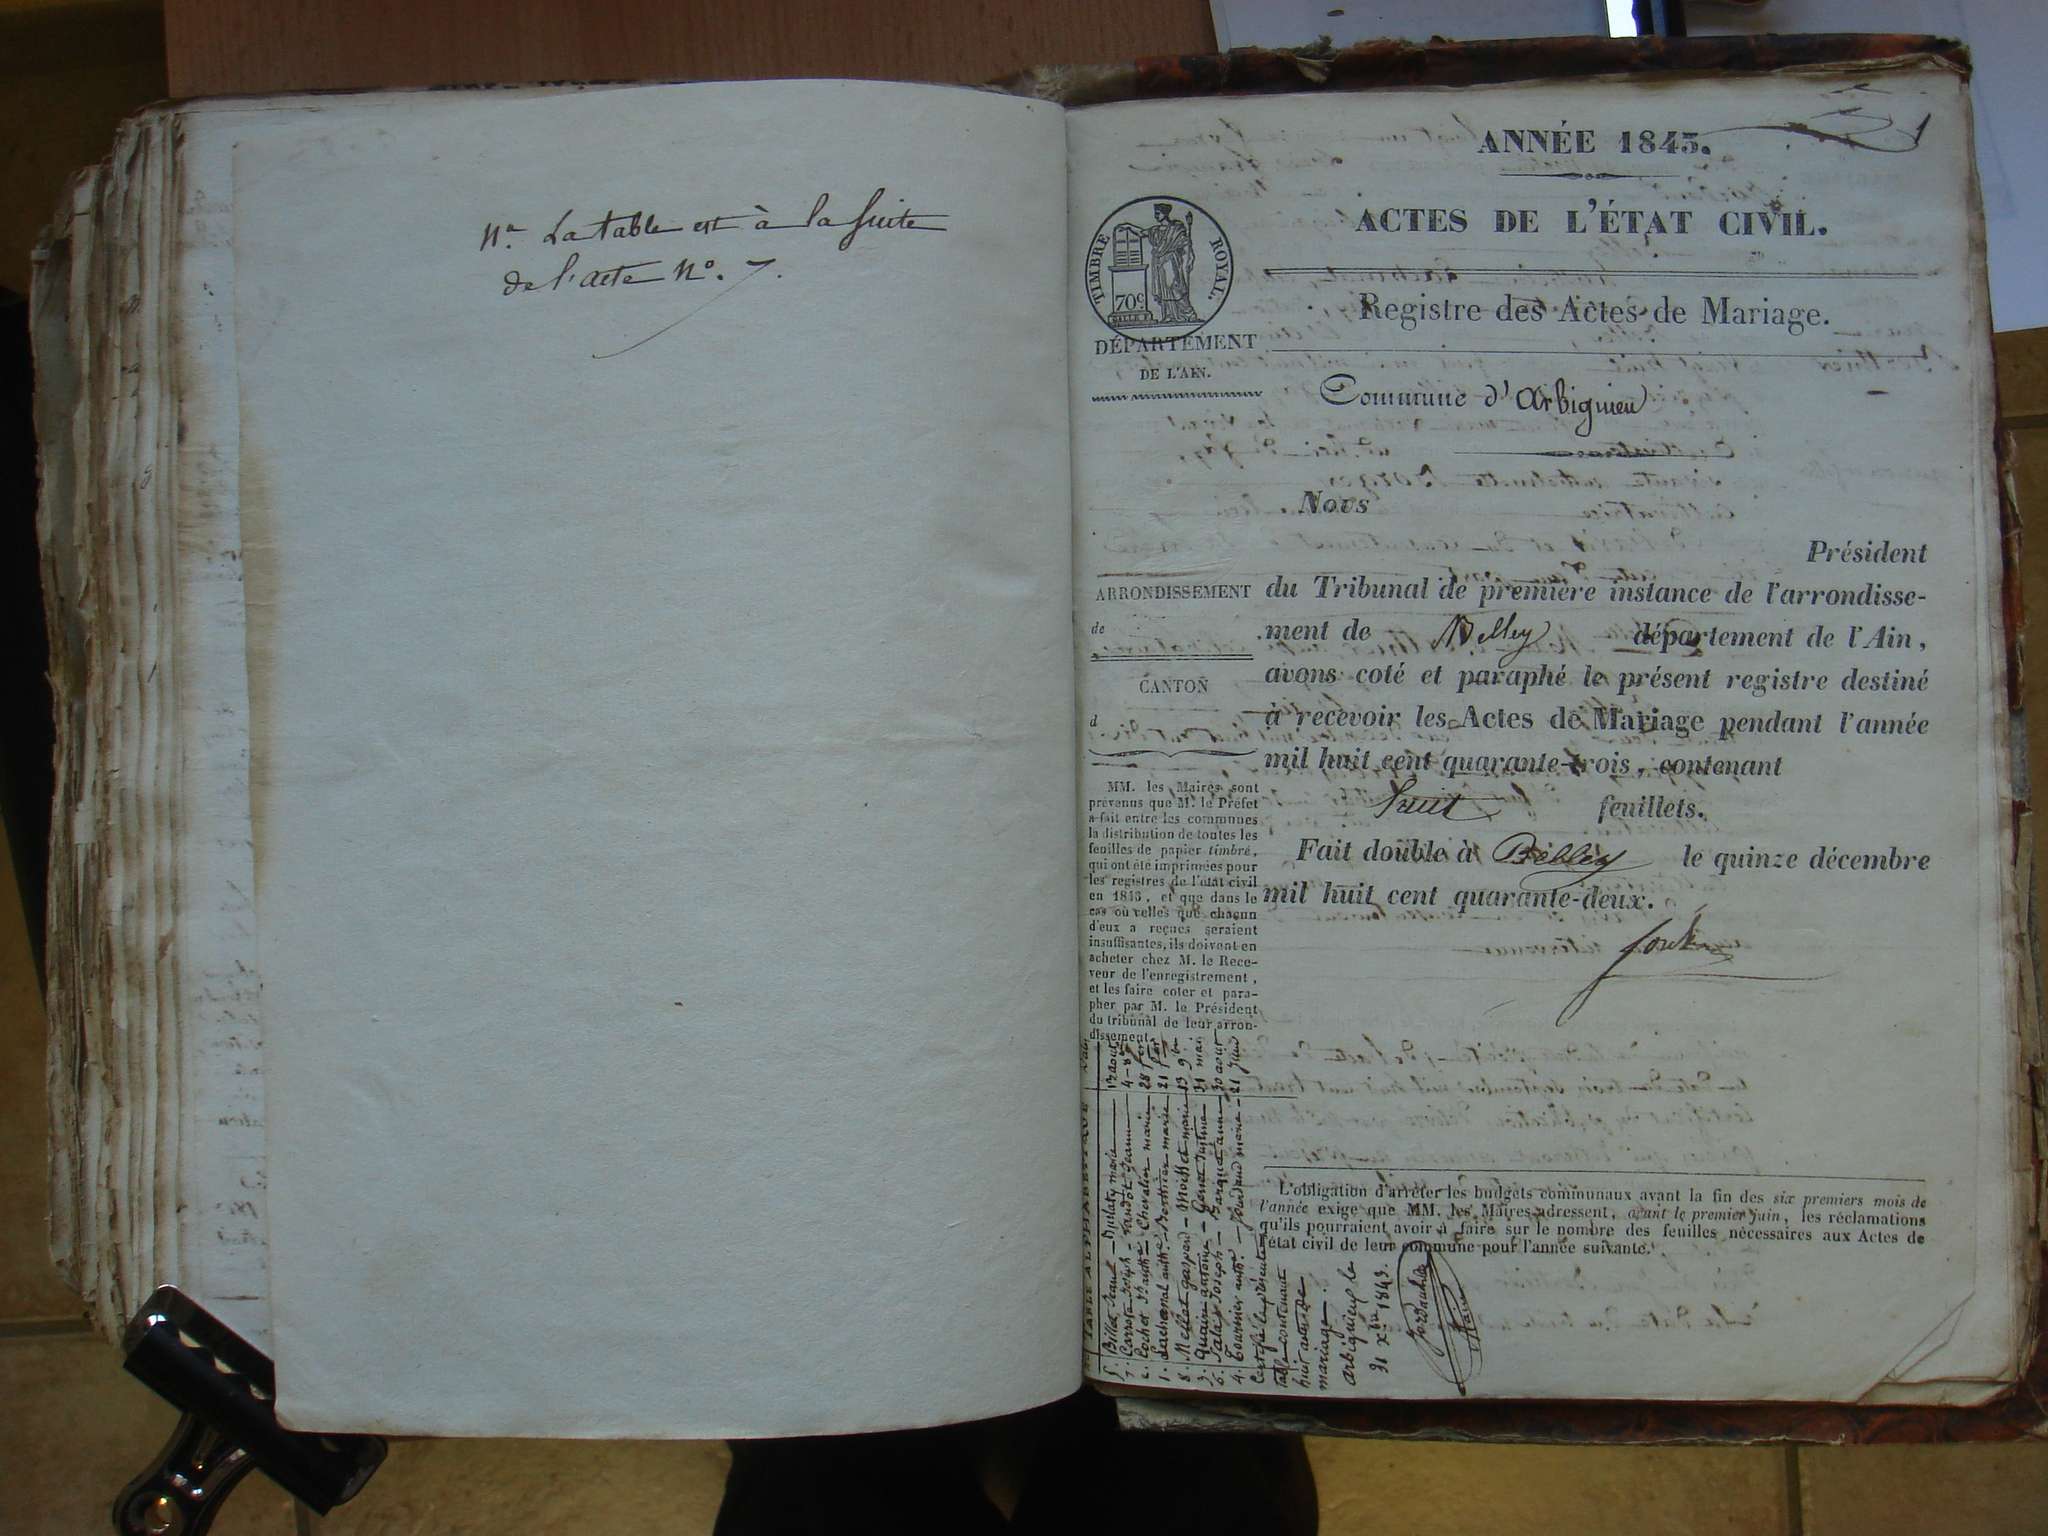 Nª. La table est à la suite
de l'acte N°. 7.
1
ANNÉE 1843.
ACTES DE L'ÉTAT CIVIL.
TIMBRE ROYAL.
70 c
Registre des Actes de Mariage.
DÉPARTEMENT
DE L'AIN.
Commune d'Arbignieu
Nous
Président
ARRONDISSEMENT
de
CANTON
d
du Tribunal de première instance de l'arrondisse-
ment de Belley département de l'Ain,
avons coté et paraphé le présent registre destiné
à recevoir les Actes de Mariage pendant l'année
mil huit cent quarante-trois, contenant
huit feuillets.
Fait double à Belley le quinze décembre
mil huit cent quarante-deux.
MM. les Maires sont
prévenus que M. le Préfet
a fait entre les communes
la distribution de toutes les
feuilles de papier timbré,
qui ont été imprimées pour
les registres de l'état civil
en 1843, et que dans le
cas où celles que chacun
d'eux a reçues seraient
insuffisantes, ils doivent en
acheter chez M. le Rece-
veur de l'enregistrement,
et les faire coter et para-
pher par M. le Président
du tribunal de leur arron-
dissement.
L'obligation d'arrêter les budgets communaux avant la fin des six premiers mois de
l'année exige que MM. les Maires adressent, avant le premier juin, les réclamations
qu'ils pourraient avoir à faire sur le nombre des feuilles nécessaires aux Actes de
l'état civil de leur commune pour l'année suivante.
TABLE ALPHABÉTIQUE
5. Billet — marie — 12 aout
7. Carrota Joseph — jeanne — 4
2. Cochet — Chevalier marie — 28
1. Lachenal anth. — Berthier marie — 21
8. Mellet gaspard — Moiffet marie — 13 9bre
3. Quain antoine — Genet Justine — 31 mai
6. Salaz Joseph — 30 aout
4. Tournier anth. — Jourdand marie — 21 Juin
Certifié la présente
table contenant
huit actes de
mariage.
arbignieu le
31 Xbre 1843.